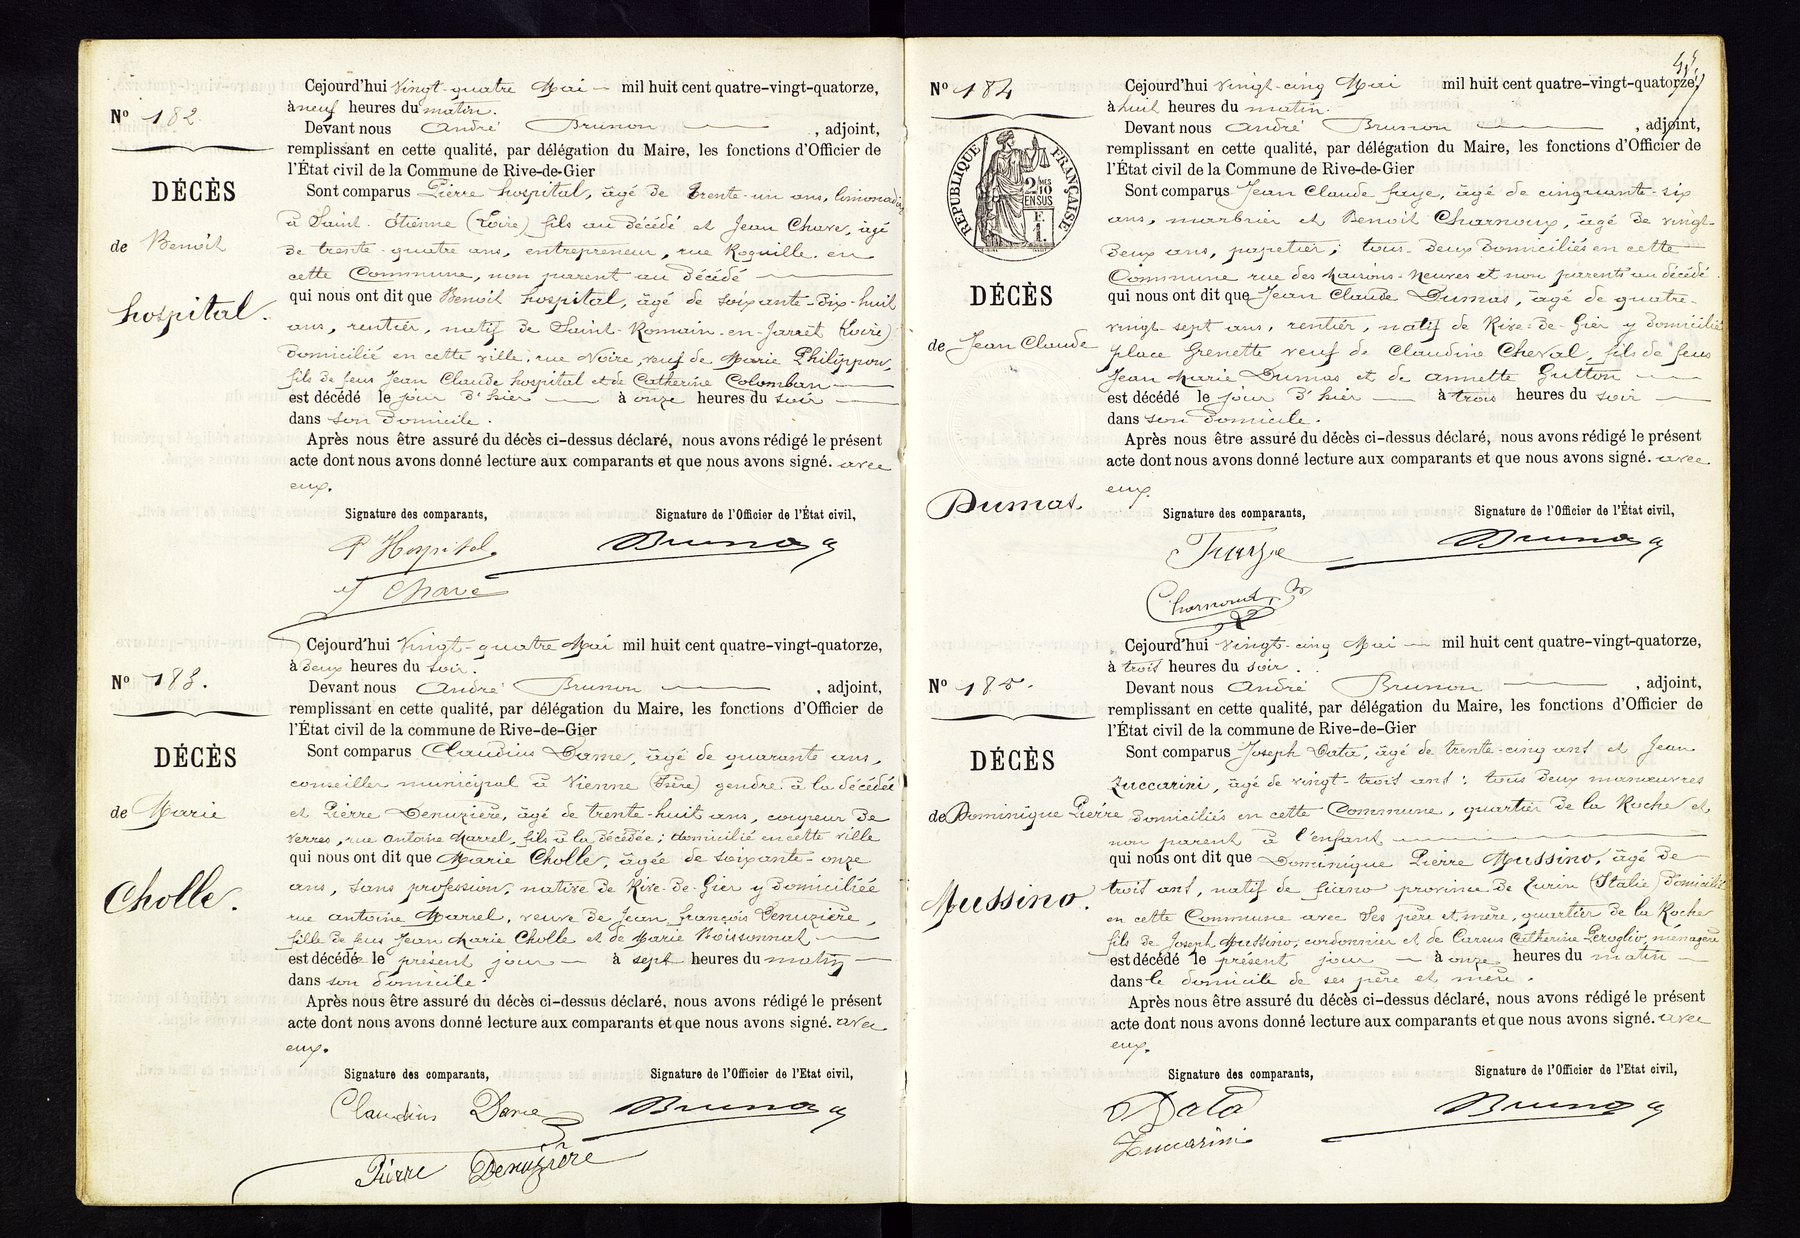 Nº 182.
DÉCÈS
de Benoit
hospital.
Cejourd'hui Vingt-quatre Mai mil huit cent quatre-vingt-quatorze,
à neuf heures du matin.
Devant nous André Brunon , adjoint,
remplissant en cette qualité, par délégation du Maire, les fonctions d'Officier de
l'État civil de la Commune de Rive-de-Gier
Sont comparus Pierre hospital, âgé de trente-un ans, limonadier
à Saint-Etienne (Loire) fils au décédé et Jean Chave, âgé
de trente-quatre ans, entrepreneur, rue Roquille, en
cette Commune, non parent au décédé
qui nous ont dit que Benoit hospital, âgé de soixante-dix-huit
ans, rentier, natif de Saint-Romain-en-Jarret (Loire)
domicilié en cette ville, rue Noire, veuf de Marie Philippon,
fils de feus Jean Claude hospital et de Catherine Colomban
est décédé le jour d'hier à onze heures du soir
dans son domicile.
Après nous être assuré du décès ci-dessus déclaré, nous avons rédigé le présent
acte dont nous avons donné lecture aux comparants et que nous avons signé. avec
eux.
Signature des comparants, Signature de l'Officier de l'État civil,
P Hospital Brunon
J Chave
Nº 183.
DÉCÈS
de Marie
Cholle.
Cejourd'hui Vingt-quatre Mai mil huit cent quatre-vingt-quatorze,
à deux heures du soir.
Devant nous André Brunon , adjoint,
remplissant en cette qualité, par délégation du Maire, les fonctions d'Officier de
l'État civil de la commune de Rive-de-Gier
Sont comparus Claudius Dame, âgé de quarante ans,
conseiller municipal à Vienne (Isère) gendre à la décédée
et Pierre Denuzière, âgé de trente-huit ans, coupeur de
verres, rue Antoine Marrel, fils à la décédée; domicilié en cette ville
qui nous ont dit que Marie Cholle, âgée de soixante-onze
ans, sans profession, native de Rive-de-Gier y domiciliée
rue Antoine Marrel, veuve de Jean François Denuzière,
fille de feus Jean Marie Cholle et de Marie Boissonnat
est décédée le présent jour à sept heures du matin
dans son domicile.
Après nous être assuré du décès ci-dessus déclaré, nous avons rédigé le présent
acte dont nous avons donné lecture aux comparants et que nous avons signé. avec
eux.
Signature des comparants, Signature de l'Officier de l'Etat civil,
Claudius Brunon
Pierre Denuzière
Nº 184
RÉPUBLIQUE FRANÇAISE
2 MES 10 EN SUS
F. 1.
DÉCÈS
de Jean Claude
Dumas.
Cejourd'hui vingt-cinq Mai mil huit cent quatre-vingt-quatorze,
à huit heures du matin.
Devant nous André Brunon , adjoint,
remplissant en cette qualité, par délégation du Maire, les fonctions d'Officier de
l'État civil de la Commune de Rive-de-Gier
Sont comparus Jean Claude faye, âgé de cinquante-six
ans, marbrier et Benoit Charnoux, âgé de vingt-
deux ans, papetier; tous-deux domiciliés en cette
Commune rue des Maisons-Neuves et non parents au décédé
qui nous ont dit que Jean Claude Dumas, âgé de quatre-
vingt-sept ans, rentier, natif de Rive-de-Gier y domicilié
place Grenette veuf de Claudine Cheval, fils de feus
Jean Marie Dumas et de annette Gutton
est décédé le jour d'hier à trois heures du soir
dans son domicile.
Après nous être assuré du décès ci-dessus déclaré, nous avons rédigé le présent
acte dont nous avons donné lecture aux comparants et que nous avons signé. avec
eux.
Signature des comparants, Signature de l'Officier de l'État civil,
Brunon
Charnoux
Nº 185.
DÉCÈS
de Dominique Pierre
Mussino.
Cejourd'hui vingt-cinq Mai mil huit cent quatre-vingt-quatorze,
à trois heures du soir.
Devant nous André Brunon , adjoint,
remplissant en cette qualité, par délégation du Maire, les fonctions d'Officier de
l'État civil de la commune de Rive-de-Gier
Sont comparus Joseph Data, âgé de trente-cinq ans et Jean
Zuccarini, âgé de vingt-trois ans; tous deux manœuvres
domiciliés en cette Commune, quartier de la Roche et
non parent à l'enfant
qui nous ont dit que Dominique Pierre Mussino, âgé de
trois ans, natif de fiano province de Turin (Italie) domicilié
en cette Commune avec ses père et mère, quartier de la Roche
fils de Joseph Mussino, cordonnier et de Catherine Peroglio, ménagère
est décédé le présent jour à onze heures du matin
dans le domicile de ses père et mère.
Après nous être assuré du décès ci-dessus déclaré, nous avons rédigé le présent
acte dont nous avons donné lecture aux comparants et que nous avons signé. avec
eux.
Signature des comparants, Signature de l'Officier de l'Etat civil,
Data Brunon
Zuccarini